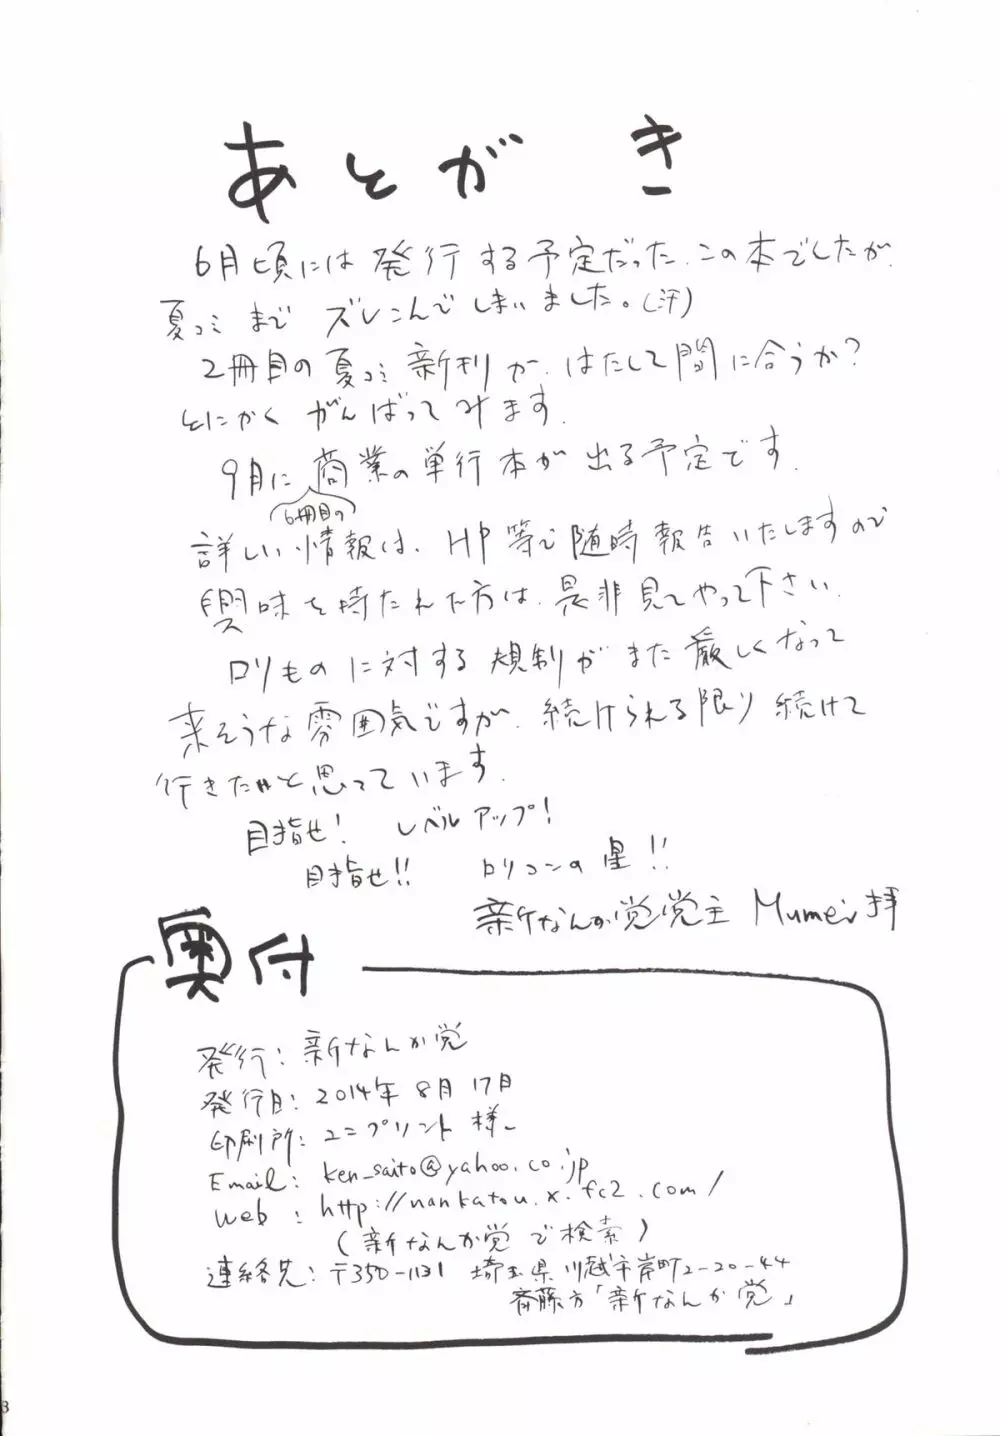 あとがき
6月頃には発行する予定だった、この本でしたが、
夏コミまでズレこんでしまいました。(汗)
2冊目の夏コミ新刊が、はたして間に合うか?
とにかくがんばってみます。
9月に商業の単行本が出る予定です。
6冊目の
詳しい情報は、HP等で随時報告いたしますので
興味を持たれた方は、是非見てやって下さい。
ロリものに対する規制がまた厳しくなって
来そうな雰囲気ですが、続けられる限り続けて
行きたいと思っています。
目指せ! レベルアップ!
目指せ!! ロリコンの星!!
新なんか党党主 Mumei 拝
奥付
発行:新なんか党
発行日:2014年8月17日
印刷所:ユニプリント様
Email:ken_saito@yahoo.co.jp
Web:http://nankatou.x.fc2.com/
(新なんか党で検索)
連絡先:〒350-1131 埼玉県川越市岸町2-20-44
斉藤方「新なんか党」